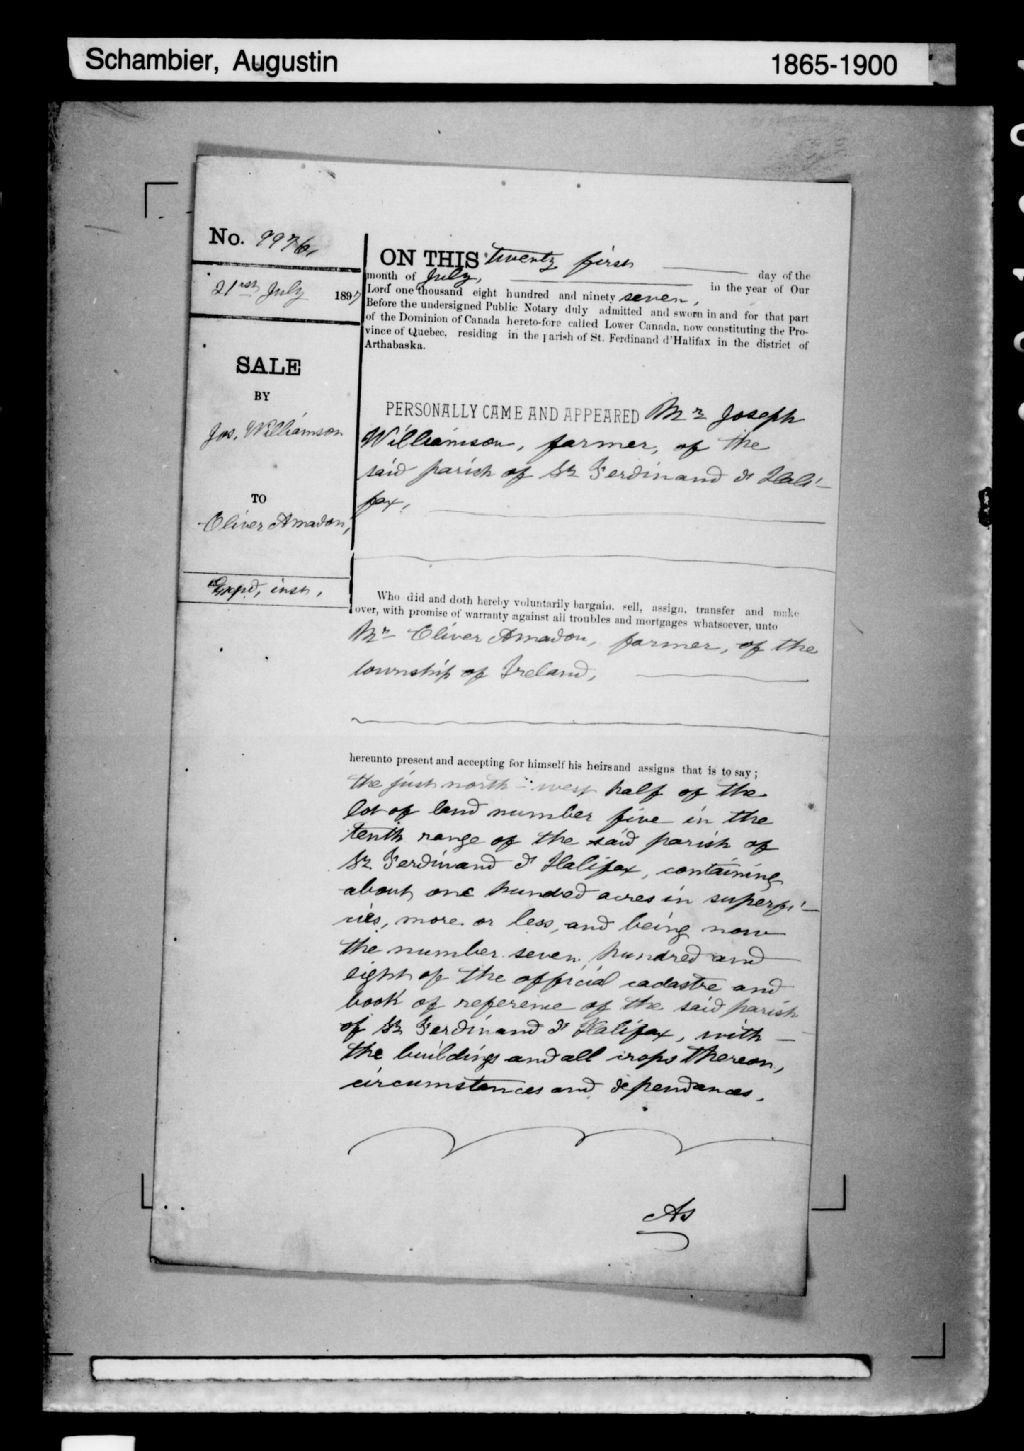 Schambier, Augustin 1865-1900
No. 9976,
21st July 1897
SALE
BY
Jos. Williamson
TO
Oliver Amadon,
Expd, insn,
ON THIS twenty first day of the
month of July, in the year of Our
Lord one thousand eight hundred and ninety seven,
Before the undersigned Public Notary duly admitted and sworn in and for that part
of the Dominion of Canada hereto-fore called Lower Canada, now constituting the Pro-
vince of Quebec, residing in the parish of St. Ferdinand d'Halifax in the district of
Arthabaska.
PERSONALLY CAME AND APPEARED Mr Joseph
Williamson, farmer, of the
said parish of St Ferdinand d'Hali-
fax,
Who did and doth hereby voluntarily bargain, sell, assign, transfer and make
over, with promise of warranty against all troubles and mortgages whatsoever, unto
Mr Oliver Amadon, farmer, of the
township of Ireland,
hereunto present and accepting for himself his heirs and assigns that is to say;
the just north-west half of the
lot of land number five in the
tenth range of the said parish of
St Ferdinand d'Halifax, containing
about one hundred acres in superfi-
cies, more or less, and being now
the number seven hundred and
eight of the official cadastre and
book of reference of the said parish
of St Ferdinand d'Halifax, with
the buildings and all crops thereon,
circumstances and dependances.
As